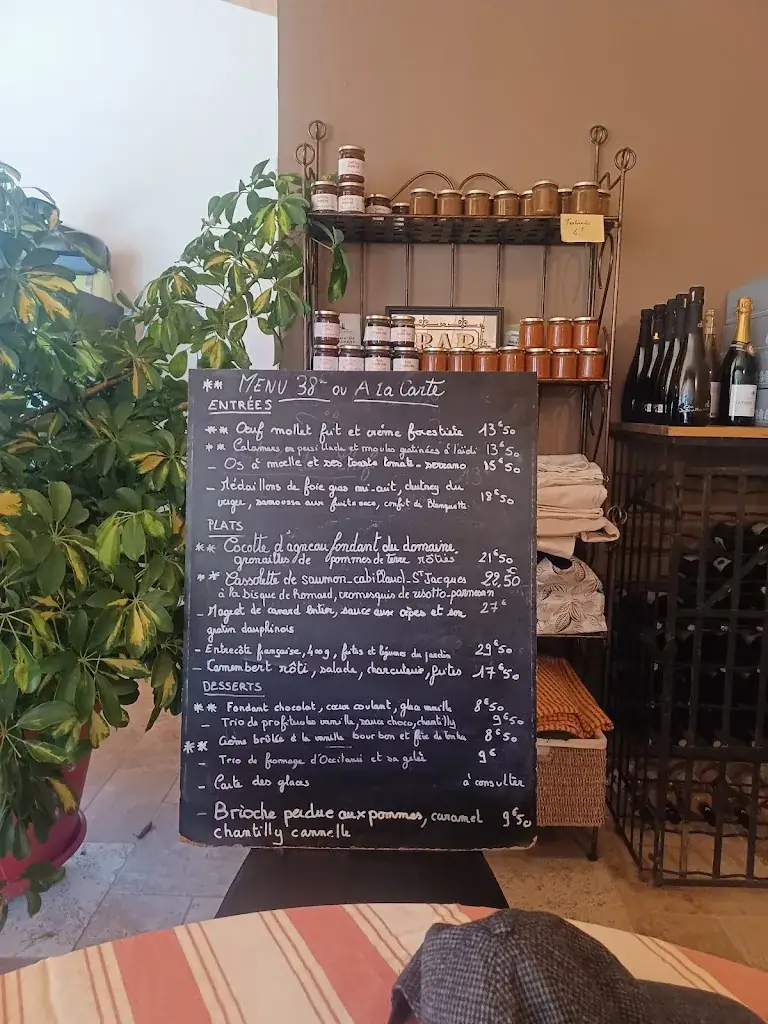 ** MENU 38€ ou A la Carte
ENTRÉES
** Oeuf mollet frit et crème forestière 13€50
** Calamars en persillade et moules gratinées à l'aïoli 13€50
- Os à moelle et ses toasts tomate - serrano 15€50
- Médaillons de foie gras mi-cuit, chutney du
verger, samoussa aux fruits secs, confit de Blanquette 18€50
PLATS
** Cocotte d'agneau fondant du domaine
grenailles de pommes de terre rôties 21€50
** Cassolette de saumon-cabillaud-St Jacques 22,50€
à la bisque de homard, cromesquis de risotto-parmesan
- Magret de canard entier, sauce aux cèpes et son 27€
gratin dauphinois
- Entrecôte française, 400g, frites et légumes du jardin 29€50
- Camembert rôti, salade, charcuterie, frites 17€50
DESSERTS
** Fondant chocolat, cœur coulant, glace vanille 8€50
- Trio de profiteroles vanille, sauce choco, chantilly 9€50
** Crème brûlée à la vanille bourbon et fève de tonka 8€50
- Trio de fromage d'Occitanie et sa gelée 9€
- Carte des glaces à consulter
- Brioche perdue aux pommes, caramel 9€50
chantilly cannelle
BAR